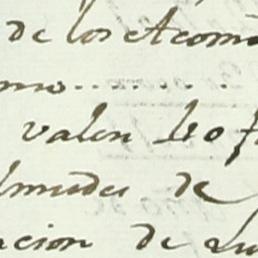 de los Acom
mo........
valen
lmudes de
acion de Lu